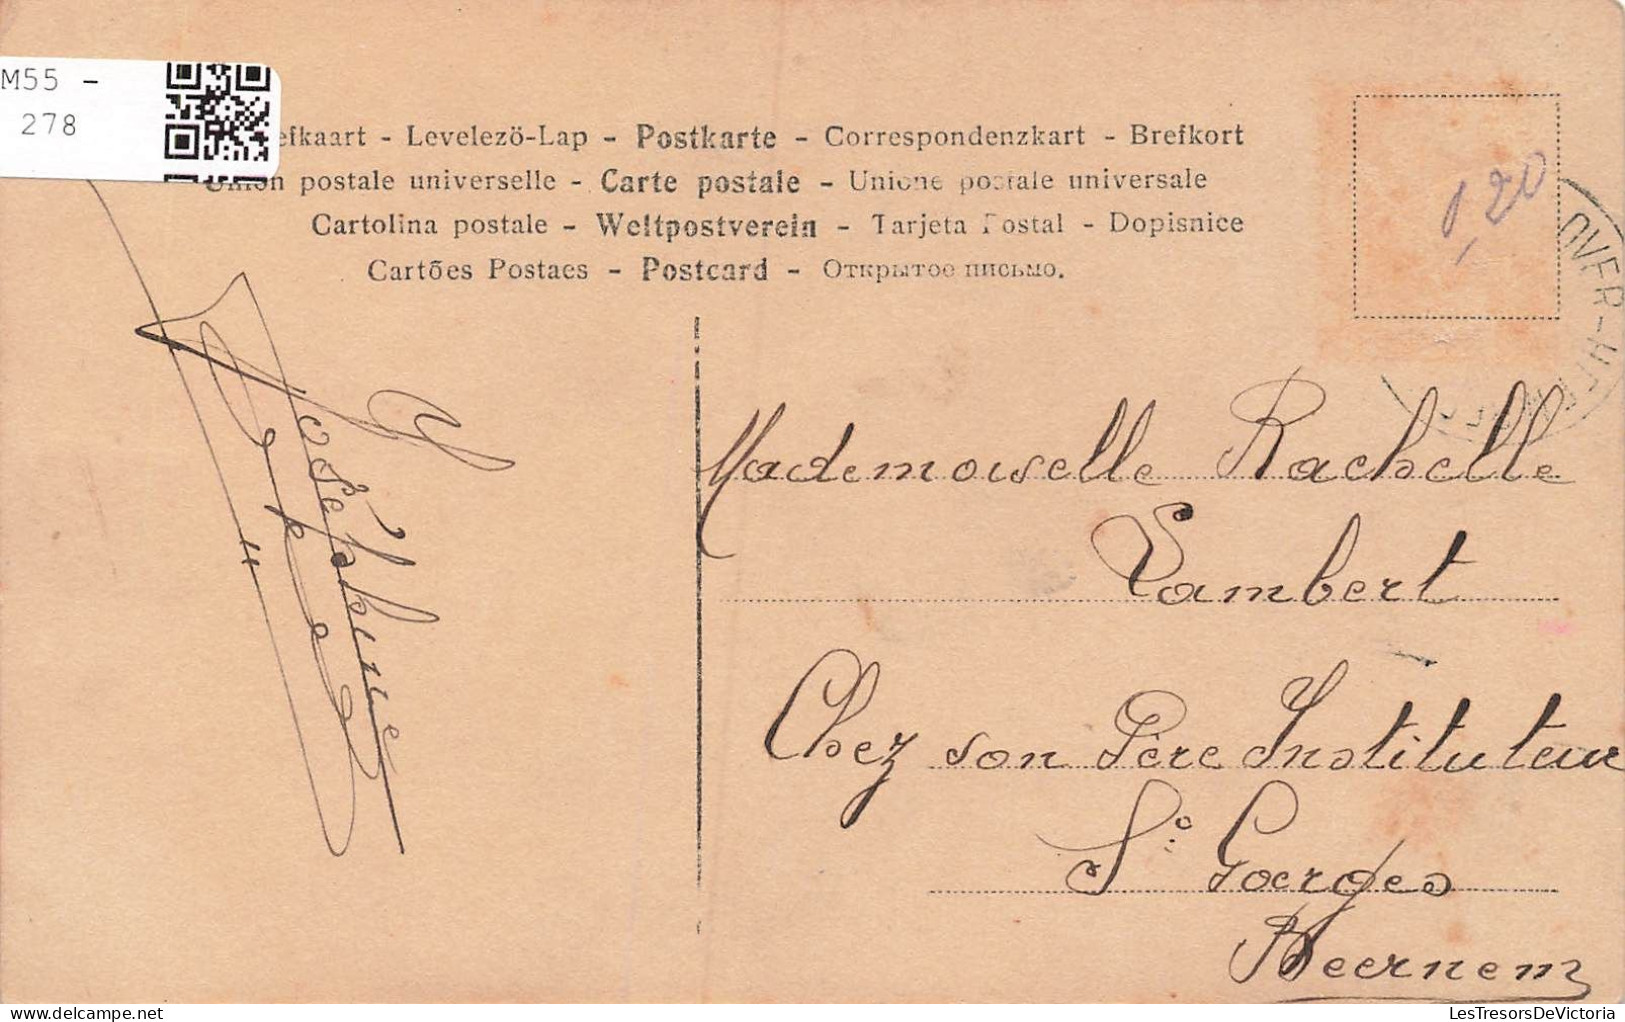 M55 -
278
efkaart - Levelezö-Lap - Postkarte - Correspondenzkart - Brefkort
Union postale universelle - Carte postale - Unione postale universale
Cartolina postale - Weltpostverein - Tarjeta Postal - Dopisnice
Cartões Postaes - Postcard - Открытое письмо.
1,20
OVER-
Josephine
Mademoiselle Rachelle
Lambert
Chez son Père Instituteur
St Goerges
Beernem
LesTresorsDeVictoria